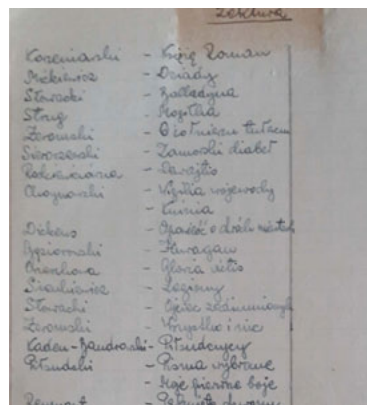 Lektura
Korzeniowski - Książę Roman
Mickiewicz - Dziady
Słowacki - Balladyna
Strug - Mogiła
Żeromski - O żołnierzu tułaczu
Sieroszewski - Zamorski diabeł
Rodziewiczówna - Dewajtis
Choynowski - Wigilia wojewody
- Kuźnia
Dickens - Opowieść o dwóch miastach
Gąsiorowski - Huragan
Orzeszkowa - Gloria victis
Sienkiewicz - Legiony
Słowacki - Ojciec zadżumionych
Żeromski - Wszystko i nic
Kaden-Bandrowski - Piłsudczycy
Piłsudski - Pisma wybrane
- Moje pierwsze boje
Reymont -